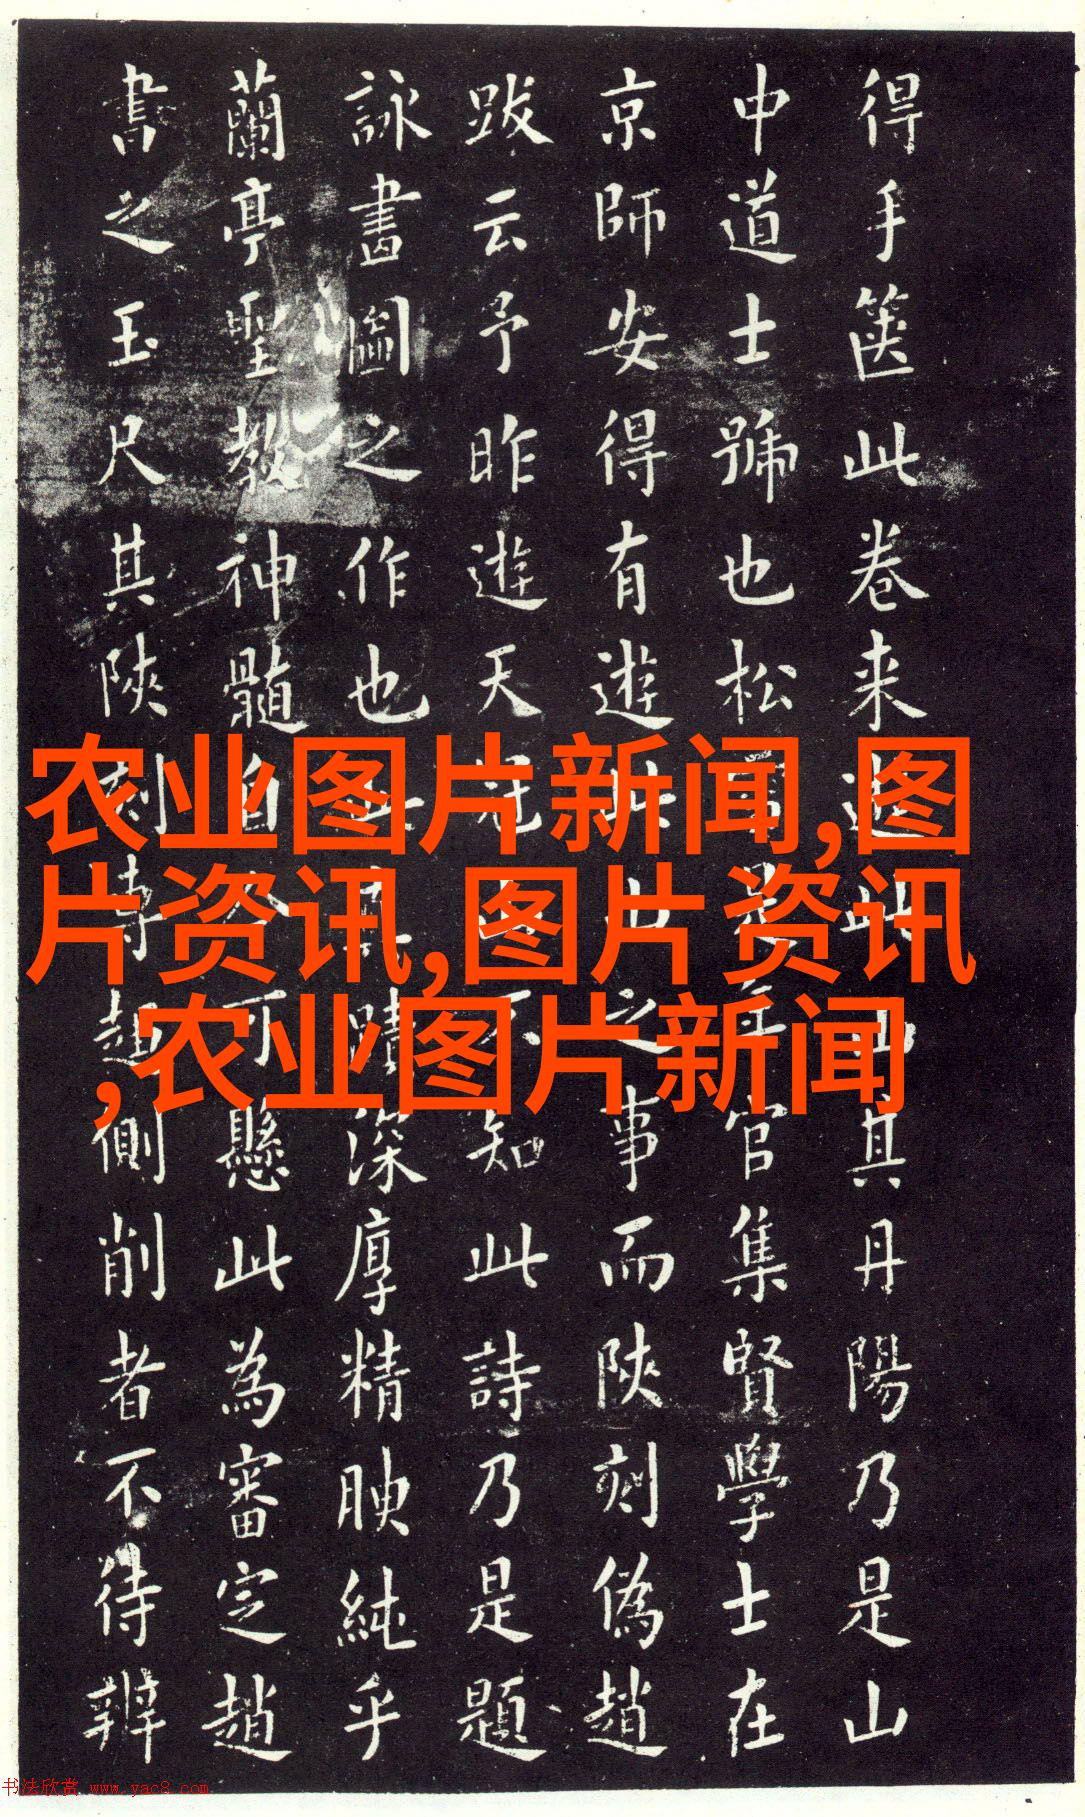 得手箧此卷来此其丹陽乃是山
中道士號也松官集賢學士在
京師安得有遊此山之事而陝刻偽趙
跋云予昨遊天冠山不知此詩乃是題
詠畫圖之作也此蹟深厚精腴純乎
蘭亭聖教神髓自可懸此為審定趙
書之玉尺其陝刻側削者不待辨
农业图片新闻,图
片资讯,图片资讯
,农业图片新闻
书法欣赏 www.yac8.com